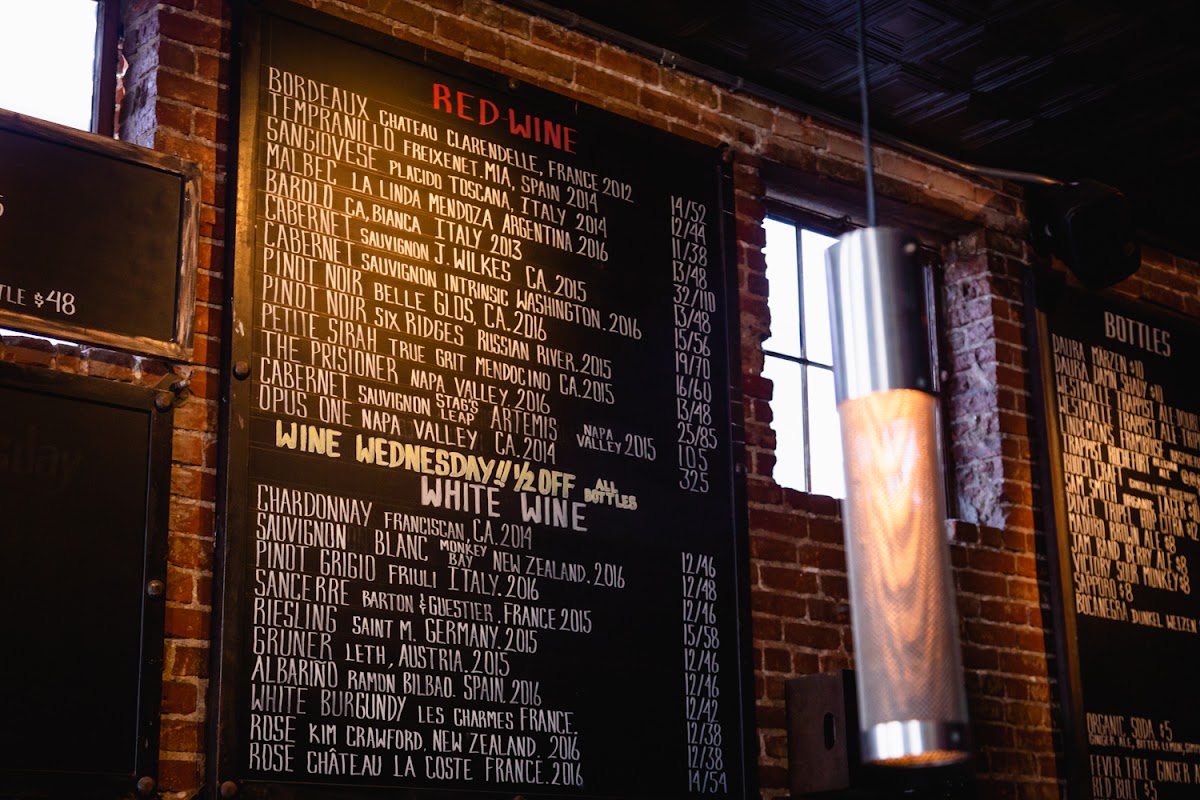 TLE $48
RED WINE
BORDEAUX CHATEAU CLARENDELLE, FRANCE 2012 14/52
TEMPRANILLO FREIXENET. MIA, SPAIN 2014 12/44
SANGIOVESE PLACIDO TOSCANA, ITALY 2014 11/38
MALBEC LA LINDA MENDOZA ARGENTINA 2016 13/48
BAROLO CA, BIANCA ITALY 2013 32/110
CABERNET SAUVIGNON J. WILKES CA. 2015 13/48
CABERNET SAUVIGNON INTRINSIC WASHINGTON. 2016 15/56
PINOT NOIR BELLE GLOS, CA. 2016 19/70
PINOT NOIR SIX RIDGES RUSSIAN RIVER. 2015 16/60
PETITE SIRAH TRUE GRIT MENDOCINO CA. 2015 13/48
THE PRISIONER NAPA VALLEY. 2016 25/85
CABERNET SAUVIGNON STAG'S LEAP ARTEMIS NAPA VALLEY 2015 105
OPUS ONE NAPA VALLEY CA. 2014 325
WINE WEDNESDAY!! ½ OFF ALL BOTTLES
WHITE WINE
CHARDONNAY FRANCISCAN, CA. 2014 12/46
SAUVIGNON BLANC MONKEY BAY NEW ZEALAND. 2016 12/48
PINOT GRIGIO FRIULI ITALY. 2016 12/46
SANCERRE BARTON & GUESTIER. FRANCE 2015 15/58
RIESLING SAINT M. GERMANY. 2015 12/46
GRUNER LETH, AUSTRIA. 2015 12/46
ALBARIÑO RAMON BILBAO. SPAIN. 2016 12/42
WHITE BURGUNDY LES CHARMES FRANCE. 12/38
ROSE KIM CRAWFORD. NEW ZEALAND. 2016 12/38
ROSE CHÂTEAU LA COSTE FRANCE. 2016 14/54
BOTTLES
DAURA MARZEN $10
DAURA DAMN SHADY $10
WESTMALLE TRAPPIST ALE
WESTMALLE TRAPPIST ALE
LINDEMANS FROMBOISE
TRAPPIST ROCHFORT
SAM SMITH
MADURO BROWN ALE $8
SAM SMITH BERRY ALE $8
VICTORY SOUR MONKEY $8
SAPPORO $8
BOCANEGRA DUNKEL WEIZEN
ORGANIC SODA $5
GINGER ALE, BITTER LEMON,
FEVER TREE GINGER
RED BULL $5